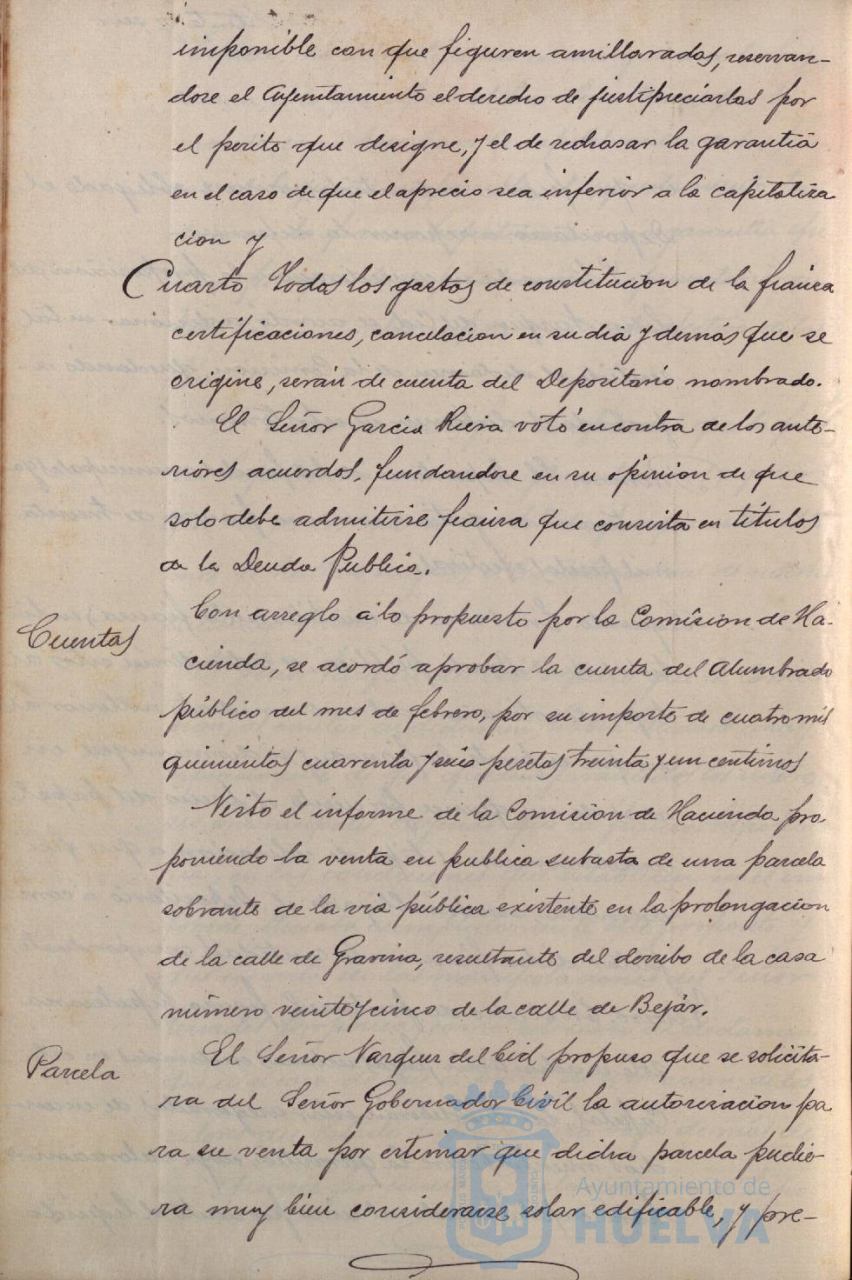 imponible con que figuren amillarados, reserván-
dose el Ayuntamiento el derecho de justipreciarlas por
el perito que designe, y el de rechasar la garantiá
en el caso de que el aprecio sea inferior a la cápitaliza
cion y
Cuarto Todos los gastos de constitucion de la fianza
certificaciones, cancelacion en su dia y demás que se
origine, serán de cuenta del Depositario nombrado.
El Señor Garcia Riera votó en contra de los ante-
riores acuerdos, fundandose en su opinion de que
solo debe admitirse fianza que consista en títulos
de la Deuda Publica.
Cuentas
Con arreglo a lo propuesto por la Comision de Ha-
cienda, se acordó aprobar la cuenta del Alumbrado
público del mes de febrero, por su importe de cuatro mil
quinientas cuarenta y seis pesetas treinta y un centimos
Visto el informe de la Comision de Hacienda pro
poniendo la venta en publica subasta de una parcela
sobrante de la via pública existente en la prolongacion
de la calle de Gravina, resultante del derribo de la casa
número veinte y cinco de la calle de Bejár.
Parcela
El Señor Vazquez del Cid propuso que se solicita-
ra del Señor Gobernador Civil la autorizacion pa
ra su venta por estimar que dicha parcela pudie-
ra muy bien considerarse solar edificable, y pre-
Ayuntamiento de
HUELVA